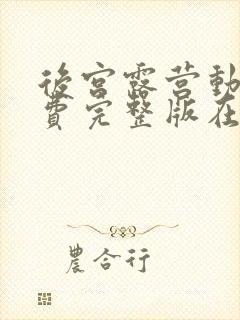 後宮露营動
費完整版在
農合行